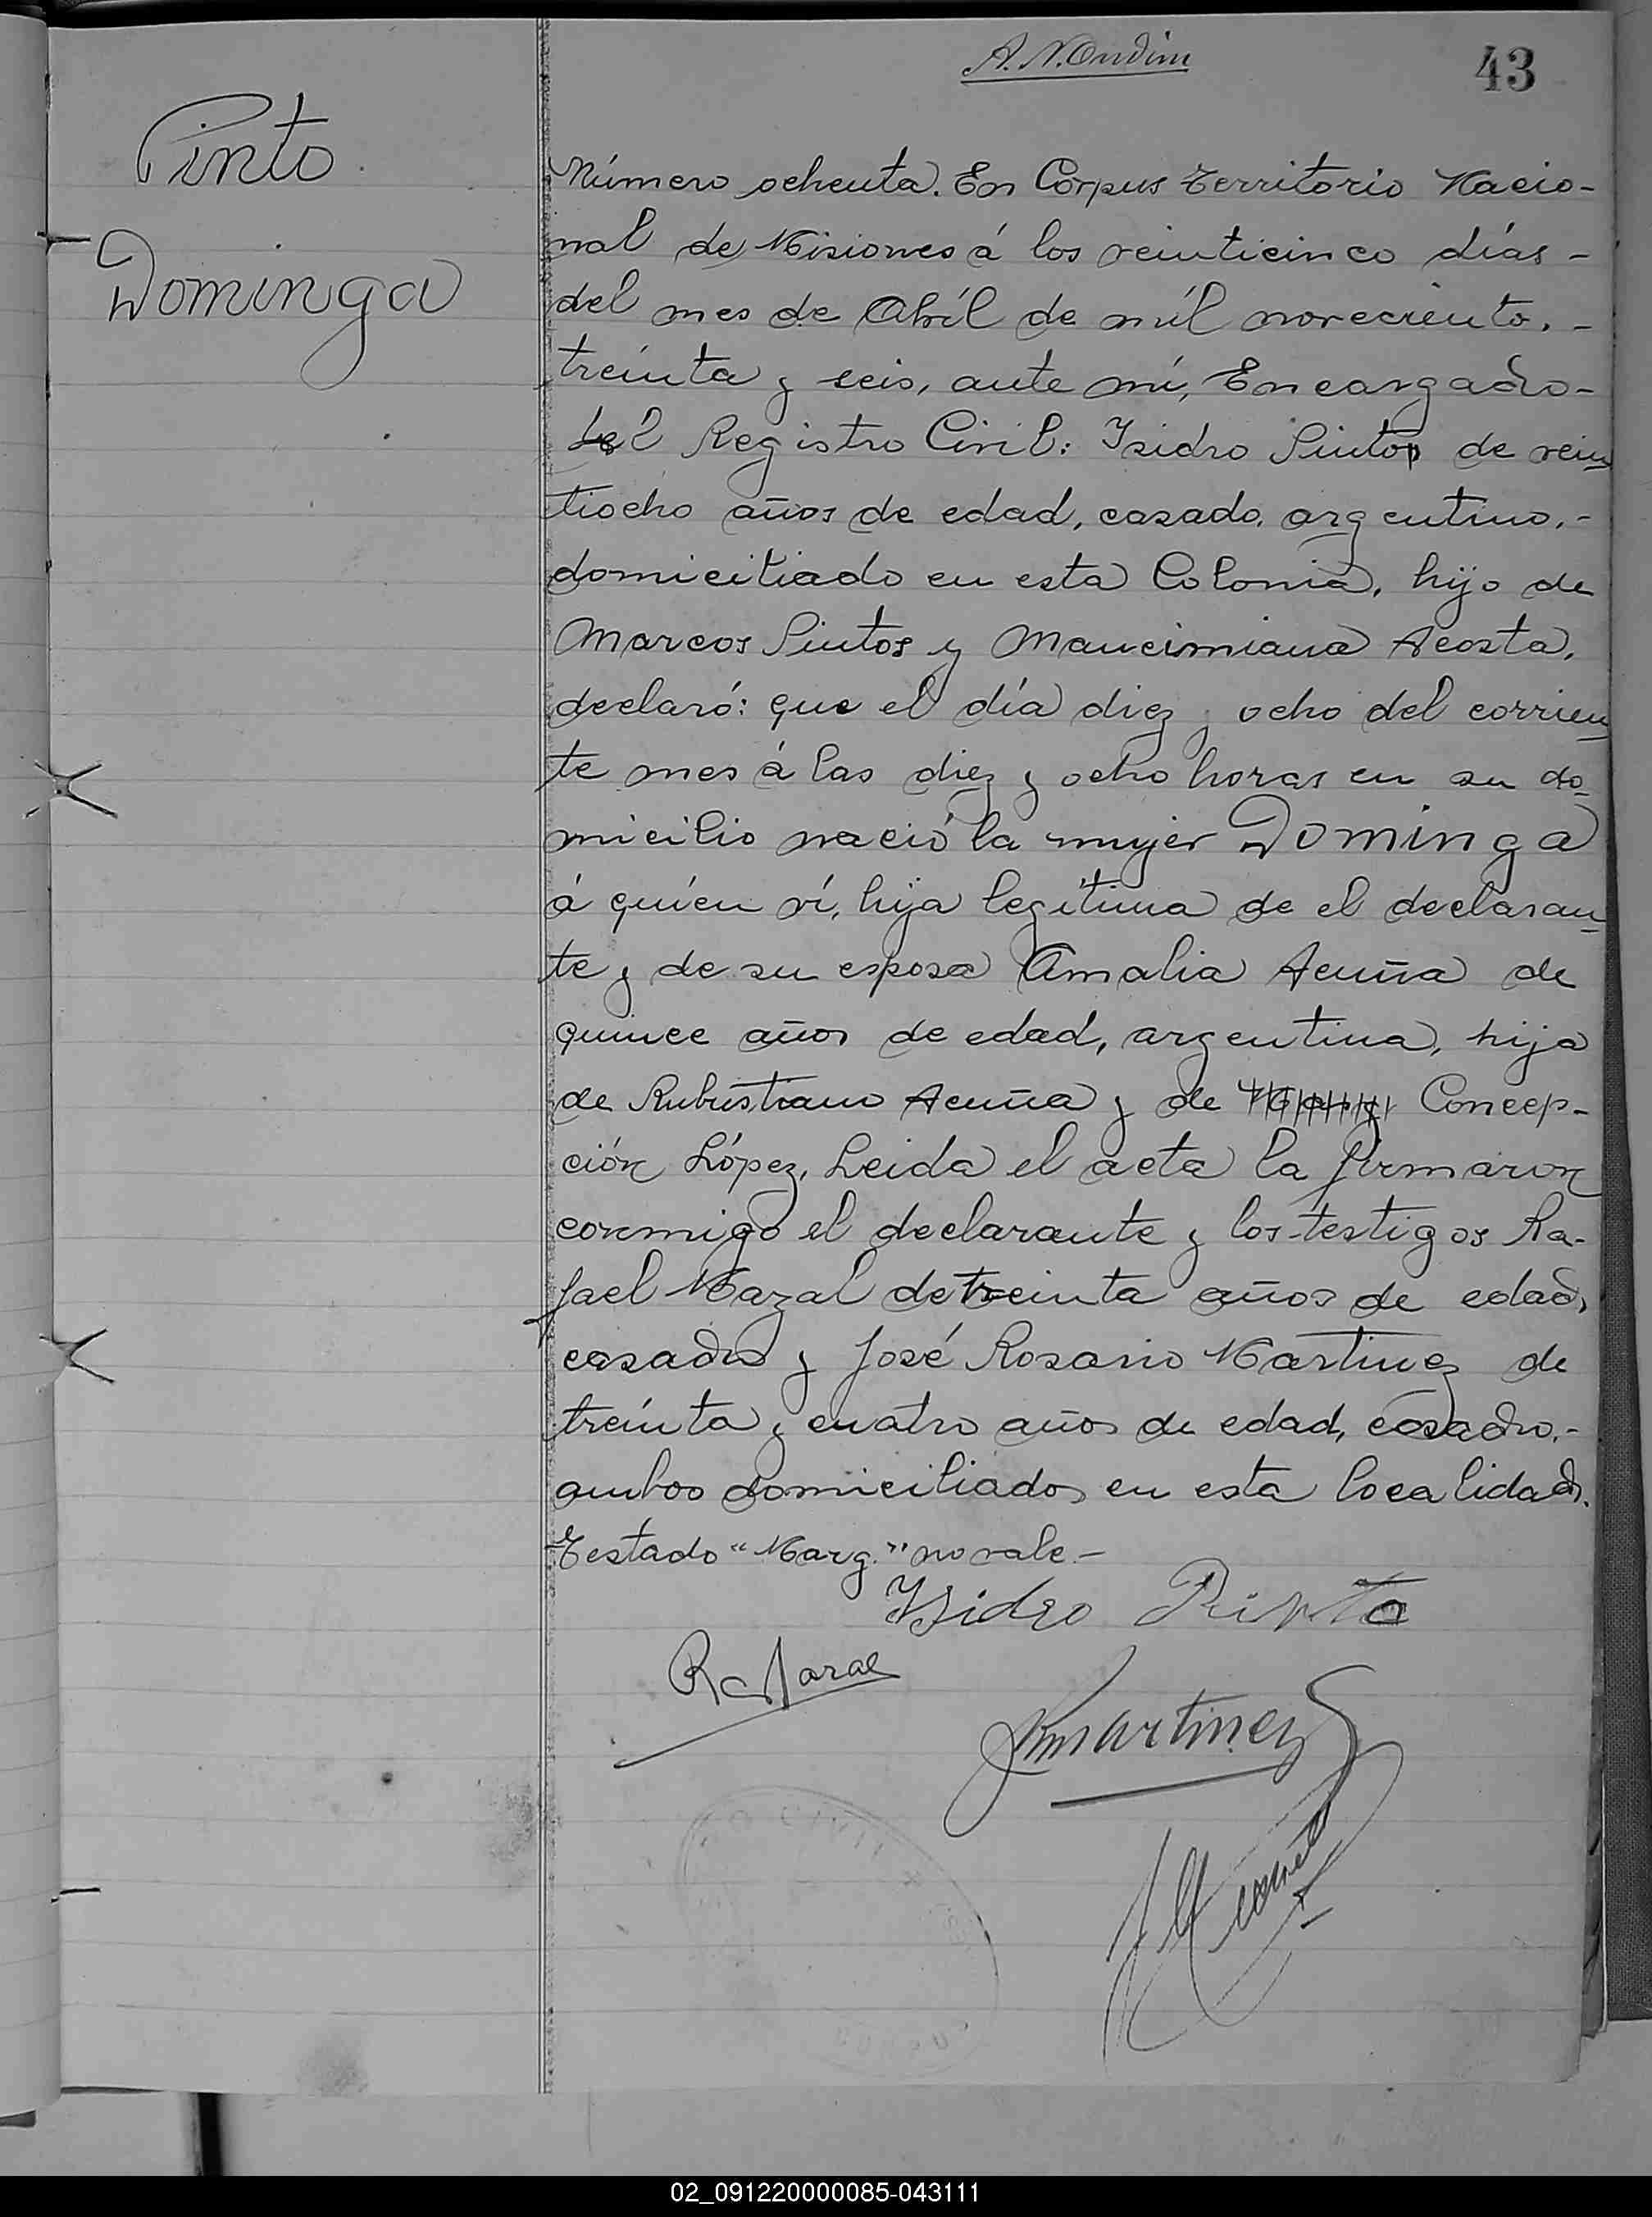 43
Pinto
Dominga
Número ochenta. En Corpus Territorio Nacio-
nal de Misiones á los veinticinco días -
del mes de Abríl de míl novecientos. -
treínta y seis, ante mí, Encargado-
del Registro Civil: Isidro Pinto de vein
tiocho años de edad, casado, argentino. -
domiciliado en esta Colonia, hijo de
Marcos Pintos y Acosta,
declaró: que el día diez y ocho del corrien
te mes á las diez y ocho horas en su do-
micilio nació la mujer Dominga
á quíen ví, hija legítima de el declaran
te y de su esposa Amalia Acuña de
quince años de edad, argentina, hija
de Rubustiano Acuña y de Concep-
ción López, Leida el acta la firmaron
conmigo el declarante y los testigos Ra-
fael de treinta años de edad,
casado y José Rosario Martinez de
treínta y cuatro años de edad, casado. -
ambos domiciliados en esta localidad.
Testado "Marg." no vale. -
Isidro Pinto
JRMartinez
02_091220000085-043111